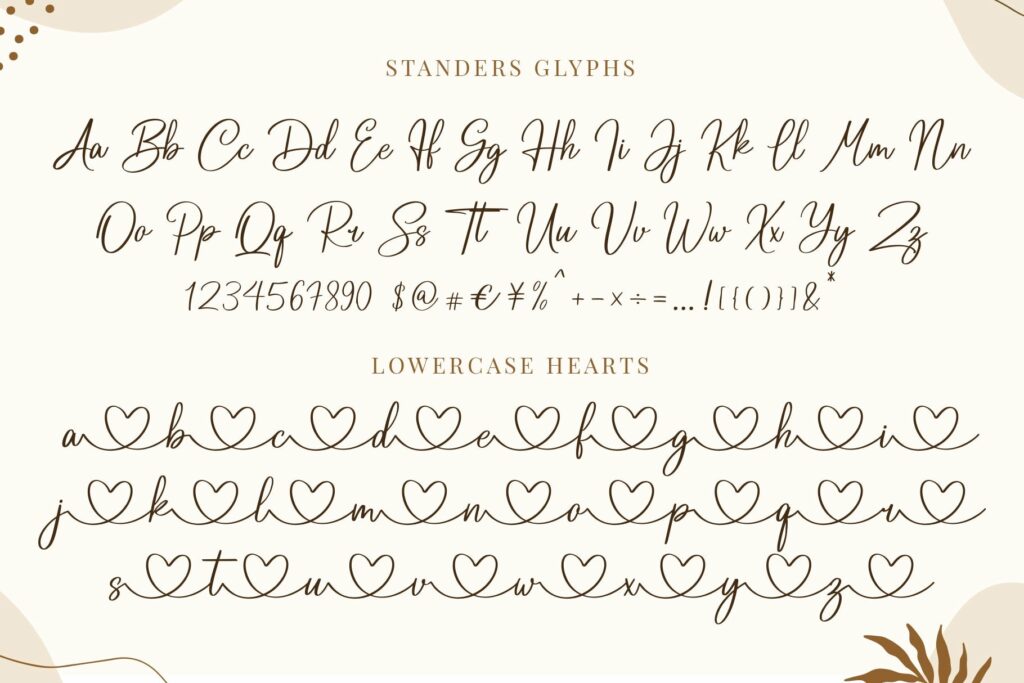 STANDERS GLYPHS
Aa Bb Cc Dd Ee Ff Gg Hh Ii Jj Kk Ll Mm Nn
Oo Pp Qq Rr Ss Tt Uu Vv Ww Xx Yy Zz
1234567890 $@#€¥%^+-×÷=...![{()}]&*
LOWERCASE HEARTS
a b c d e f g h i
j k l m n o p q r
s t u v w x y z